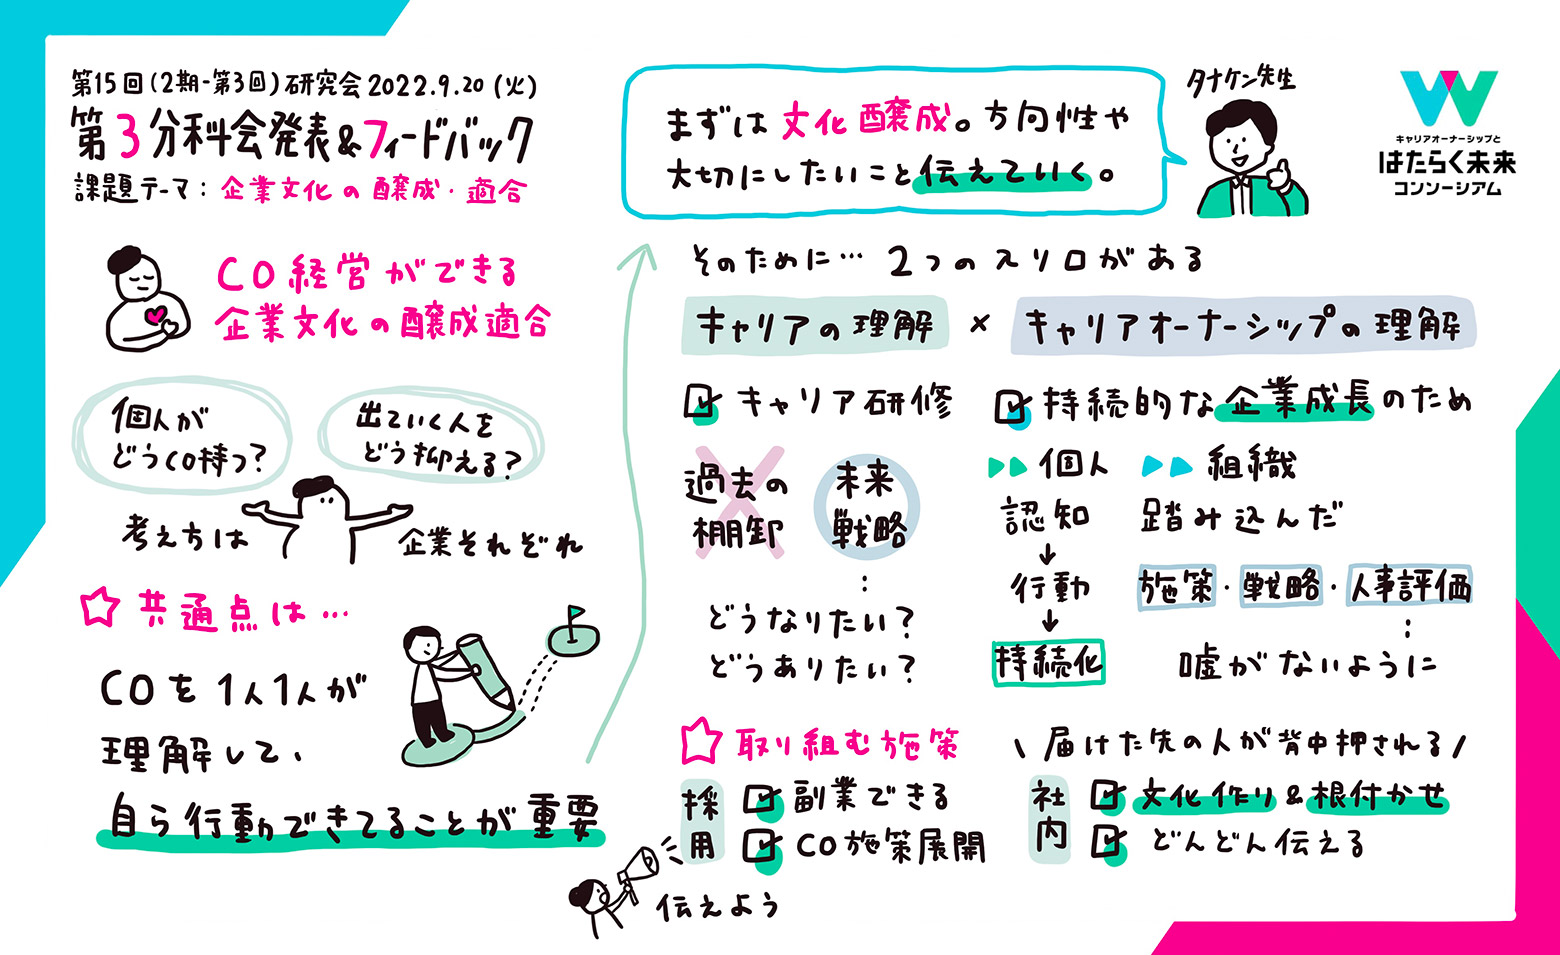 第15回(2期-第3回)研究会2022.9.20(火)
第3分科会発表&フィードバック
課題テーマ:企業文化の醸成・適合
CO経営ができる
企業文化の醸成適合
個人が
どうCO持つ?
出ていく人を
どう抑える?
考え方は
企業それぞれ
共通点は…
COを1人1人が
理解して、
自ら行動できてることが重要
まずは文化醸成。方向性や
大切にしたいこと伝えていく。
タナケン先生
キャリアオーナーシップと
はたらく未来
コンソーシアム
そのために…2つのスリ口がある
キャリアの理解×キャリアオーナーシップの理解
キャリア研修
過去の
棚卸
未来
戦略
:
どうなりたい?
どうありたい?
持続的な企業成長のため
個人
認知
↓
行動
↓
持続化
組織
踏み込んだ
施策・戦略・人事評価
:
嘘がないように
取り組む施策
採用
副業できる
CO施策展開
伝えよう
\届けた先の人が背中押される/
社内
文化作り&根付かせ
どんどん伝える